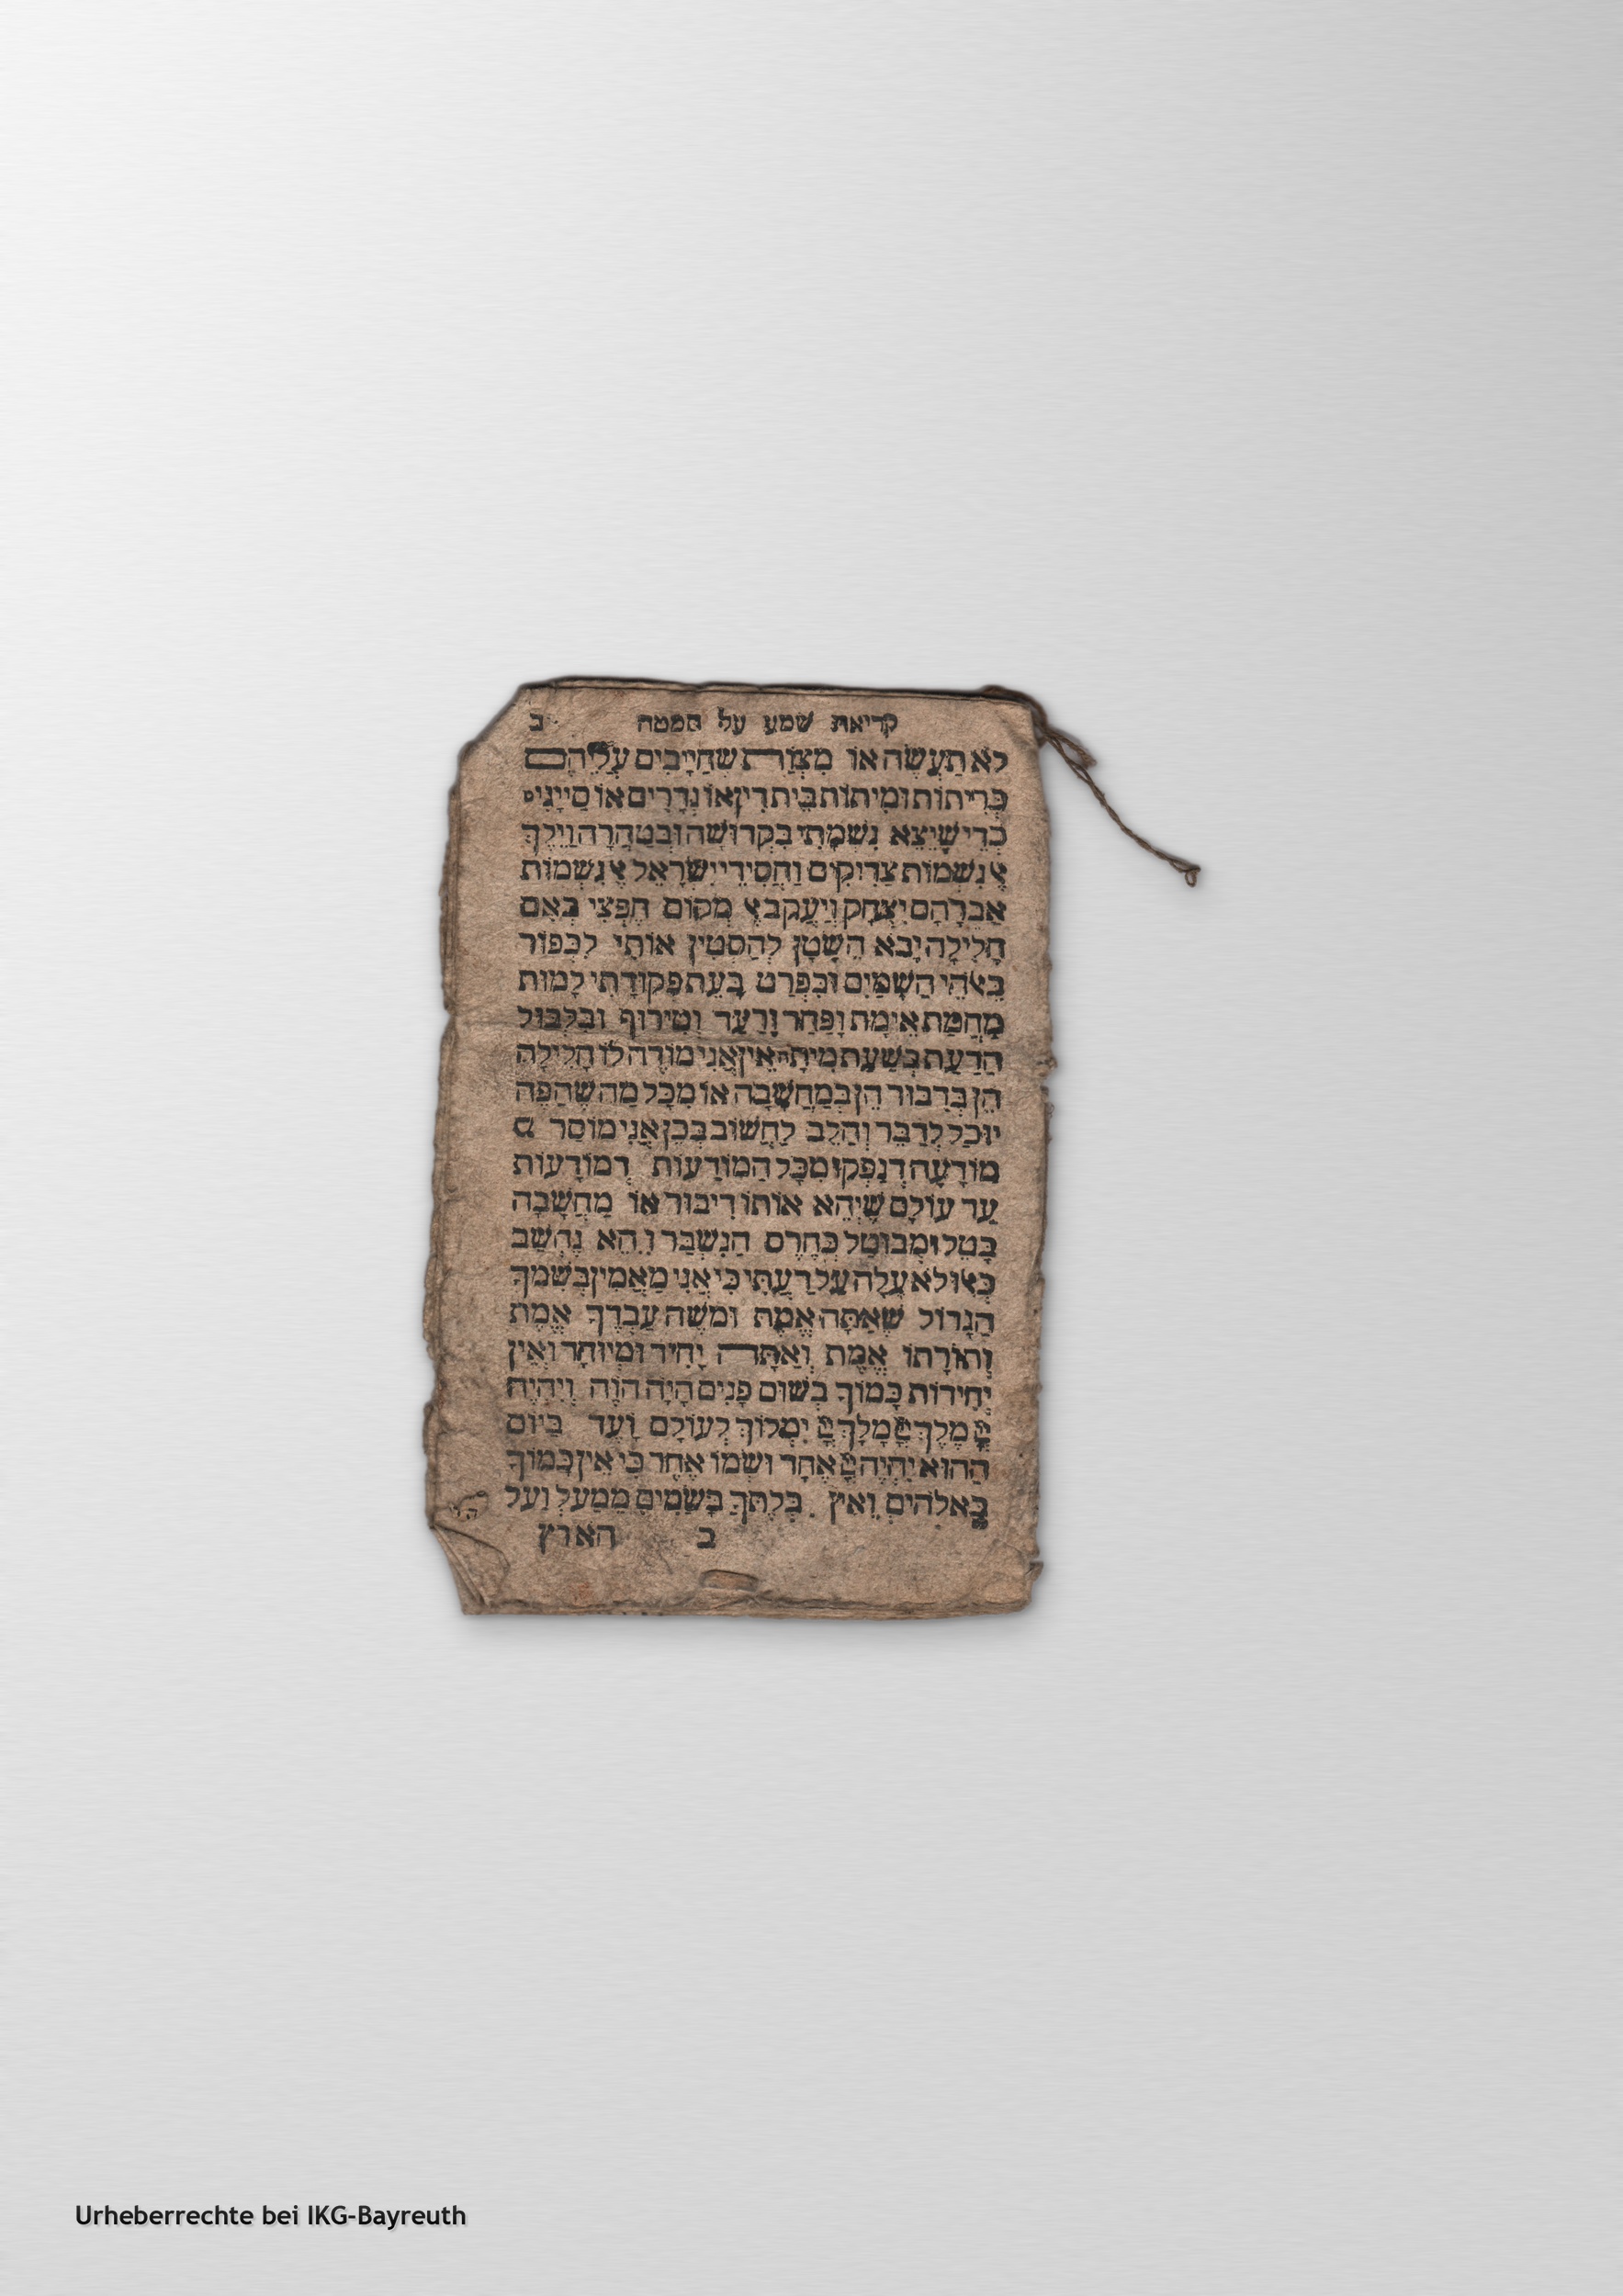 קריאת שמע על המטה ב
לֹא תַעֲשֶׂה אוֹ מִצְוֹת שֶׁחַיָּיבִים עֲלֵיהֶם
כְּרִיתוֹת וּמִיתוֹת בֵּית דִין אוֹ נְדָרִים אוֹ סַיָיגִי׳
כְּדֵי שֶׁיֵצֵא נִשְׁמָתִי בִּקְדוּשָׁה וּבְטָהֳרָה וְיֵלֵךְ
אֶל נִשְׁמוֹת צַדִיקִים וַחֲסִידֵי יִשְׂרָאֵל אֶל נִשְׁמוֹת
אַבְרָהָם יִצְחָק וְיַעֲקֹב אֶל מְקוֹם חֶפְצִי בְּאִם
חָלִילָה יָבֹא הַשָּׂטָן לְהַסְטִין אוֹתִי לִכְפּוֹר
בֵּאלֹהֵי הַשָּׁמַיִם וּבִפְרַט בְּעֵת פְּקוּדָתִי לָמוּת
מֵחֲמַת אֵימָה וָפַחַד וָרַעַד וְטֵירוּף וּבִלְבּוּל
הַדַעַת בִּשְׁעַת מִיתָה אֵין אֲנִי מוֹדֶה לוֹ חָלִילָה
הֵן בְּדִבּוּר הֵן בְּמַחֲשָׁבָה אוֹ מִכָּל מַה שֶׁהַפֶּה
יוּכַל לְדַבֵּר וְהַלֵב לַחֲשׁוֹב בְּכֵן אֲנִי מוֹסֵר
מוֹדָעָה דְנָפְקוּ מִכָּל הַמוֹדָעוֹת דְמוֹדָעוֹת
עַד עוֹלָם שֶׁיְהֵא אוֹתוֹ דִיבּוּר אוֹ מַחֲשָׁבָה
בָּטֵל וּמְבוּטָל כְּחֶרֶס הַנִשְׁבָּר וִיהֵא נֶחְשַׁב
כְּאִלּוּ לֹא עָלָה עַל דַעְתִּי כִּי אֲנִי מַאֲמִין בְּשִׁמְךָ
הַגָדוֹל שֶׁאַתָּה אֱמֶת וּמֹשֶׁה עַבְדְךָ אֱמֶת
וְתוֹרָתוֹ אֱמֶת וְאַתָּה יָחִיד וּמְיוּחָד וְאֵין
יְחִידוֹת כָּמוֹךָ בְּשׁוּם פָּנִים הָיָה הוֹוֶה וְיִהְיֶה
יְיָ מֶלֶךְ יְיָ מָלָךְ יְיָ יִמְלוֹךְ לְעוֹלָם וָעֶד בַּיוֹם
הַהוּא יִהְיֶה יְיָ אֶחָד וּשְׁמוֹ אֶחָד כִּי אֵין כָּמוֹךָ
בָּאֱלֹהִים וְאֵין בִּלְתְּךָ בַּשָׁמַיִם מִמַעַל וְעַל
ב הארץ
Urheberrechte bei IKG-Bayreuth